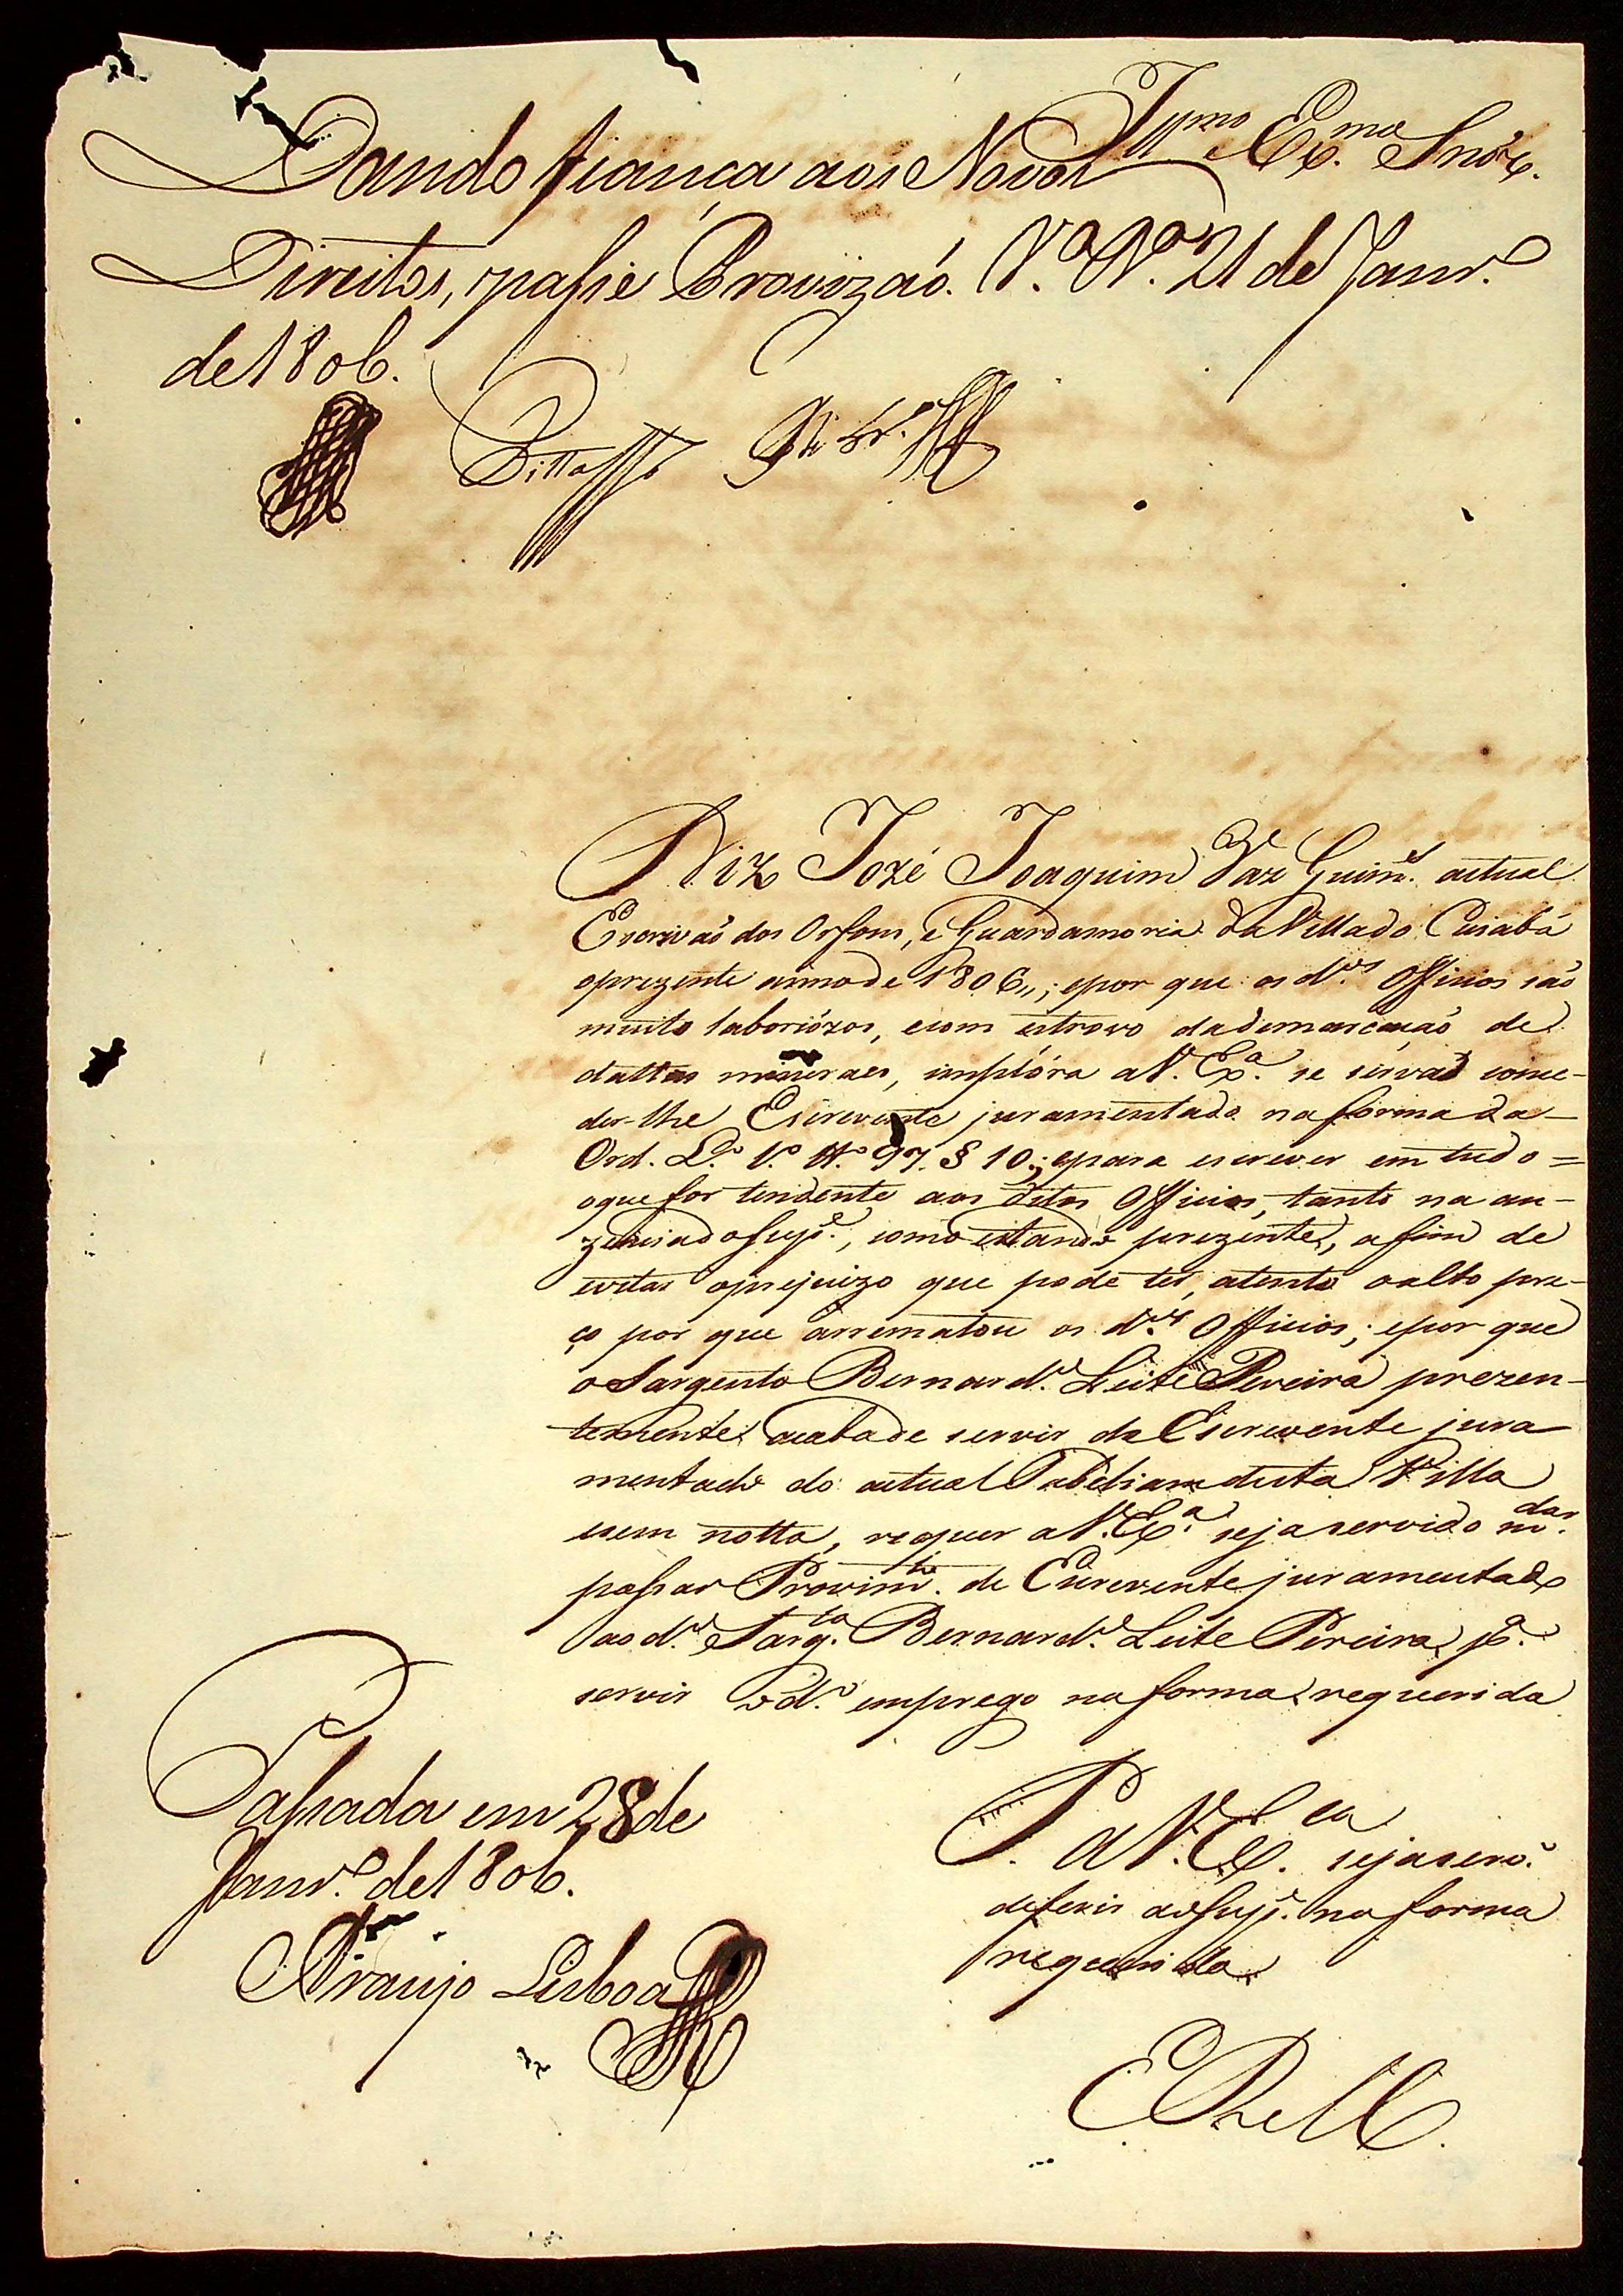 Illmo Exmo Snr̃es.
Dando fiança aos Novos
Direitos, passe Provizaó. Va. Va. 21 de Janr.o
de 1806.
Diz Jozé Joaquim Vaz Guim.es actual
Escrivaõ dos Orfons, e Guardamoria da Villa do Cuiabá
oprezente anno de 1806,,; epor que os d.os Officios saõ
muito laboriózos, ecom estrovo dademarcaçaõ de
dattas mineraes, implóra aV. Ex.a se sirvaõ conce-
der-lhe Escrevente juramentado naforma da
Ord. L.o 1.o tt.o 97. § 10; epara escrever em tudo =
oque for tendente aos ditos Officios, tanto na au-
zencia doSup.e, como estando prezente, afim de
evitar oprejuizo que pode ter, atento oalto pre-
ço por que arrematou os d.os Officios; epor que
o Sargento Bernard.o Leite Pereira prezen-
temente acaba de servir de Escrevente jura
mentado do actual Tabeliam desta Villa
esem notta, requer aV. Ex.a seja servido m.dar
passar Provim.to de Escrevente juramentado
ao d.o Sarg.to Bernard.o Leite Pereira, p.a
servir od.o emprego na forma requerida
P. aV. Ex.cia seja serv.o
deferir aoSup.e na forma
requerida
E R M.ce
Passada em 28 de
Janr.o de 1806.
Araujo Lisboa